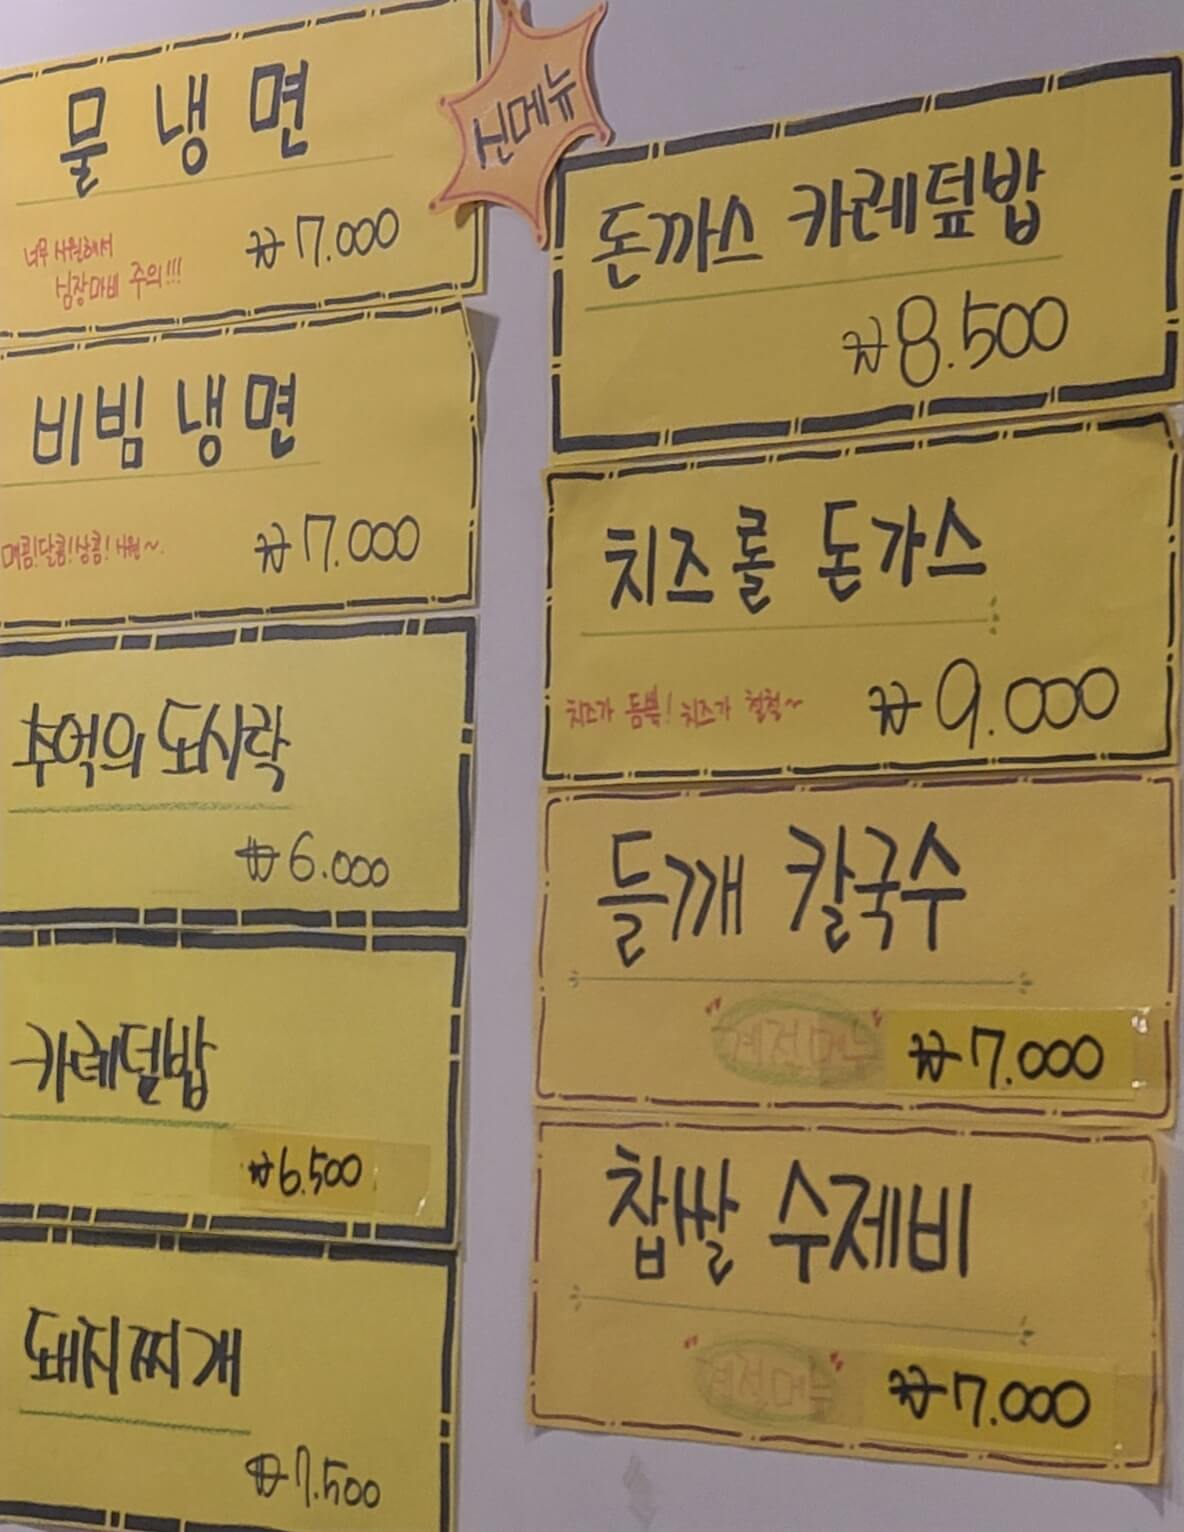 물냉면
너무 시원해서
심장마비 주의!!!
₩7.000
비빔냉면
매콤!달콤!상콤!시원~
₩7.000
추억의 도시락
₩6.000
카레덮밥
₩6.500
돼지찌개
₩7.500
신메뉴
돈까스 카레덮밥
₩8.500
치즈롤 돈가스
치즈가 듬뿍! 치즈가 철철~
₩9.000
들깨 칼국수
계절메뉴
₩7.000
찹쌀 수제비
계절메뉴
₩7.000